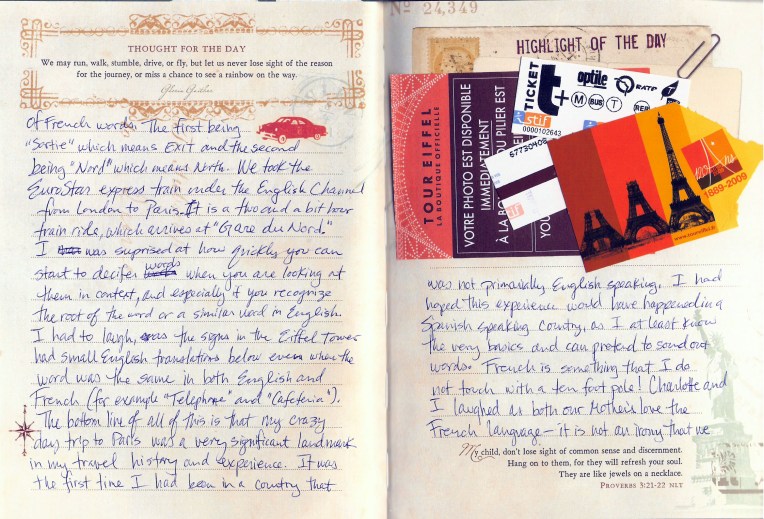 THOUGHT FOR THE DAY
We may run, walk, stumble, drive, or fly, but let us never lose sight of the reason
for the journey, or miss a chance to see a rainbow on the way.
Gloria Gaither
of French words. The first being
"Sortie" which means Exit and the second
being "Nord" which means North. We took the
EuroStar express train under the English Channel
from London to Paris. It is a two and a bit hour
train ride, which arrives at "Gare du Nord."
I was suprised at how quickly you can
start to decifer words when you are looking at
them in context, and especially if you recognize
the root of the word or a similar word in English.
I had to laugh, as the signs in the Eiffel Tower
had small English translations below even when the
word was the same in both English and
French (for example "Telephone" and "Cafeteria").
The bottom line of all of this is that my crazy
day trip to Paris was a very significant landmark
in my travel history and experience. It was
the first time I had been in a country that
Nº 24,349
HIGHLIGHT OF THE DAY
TOUR EIFFEL
LA BOUTIQUE OFFICIELLE
VOTRE PHOTO EST DISPONIBLE
IMMÉDIATEMENT
DU PILIER EST
À LA BO
YOU
TICKET
t+
optile
RATP
M
BUS
T
RER
stif
0000102643
67730408
1889-2009
www.toureiffel.fr
was not primarially English speaking. I had
hoped this experience would have happened in a
Spanish speaking country, as I at least know
the very basics and can pretend to sound out
words. French is something that I do
not touch with a ten foot pole! Charlotte and
I laughed as both our Mothers love the
French language - it is not an irony that we
My child, don't lose sight of common sense and discernment.
Hang on to them, for they will refresh your soul.
They are like jewels on a necklace.
PROVERBS 3:21-22 NLT